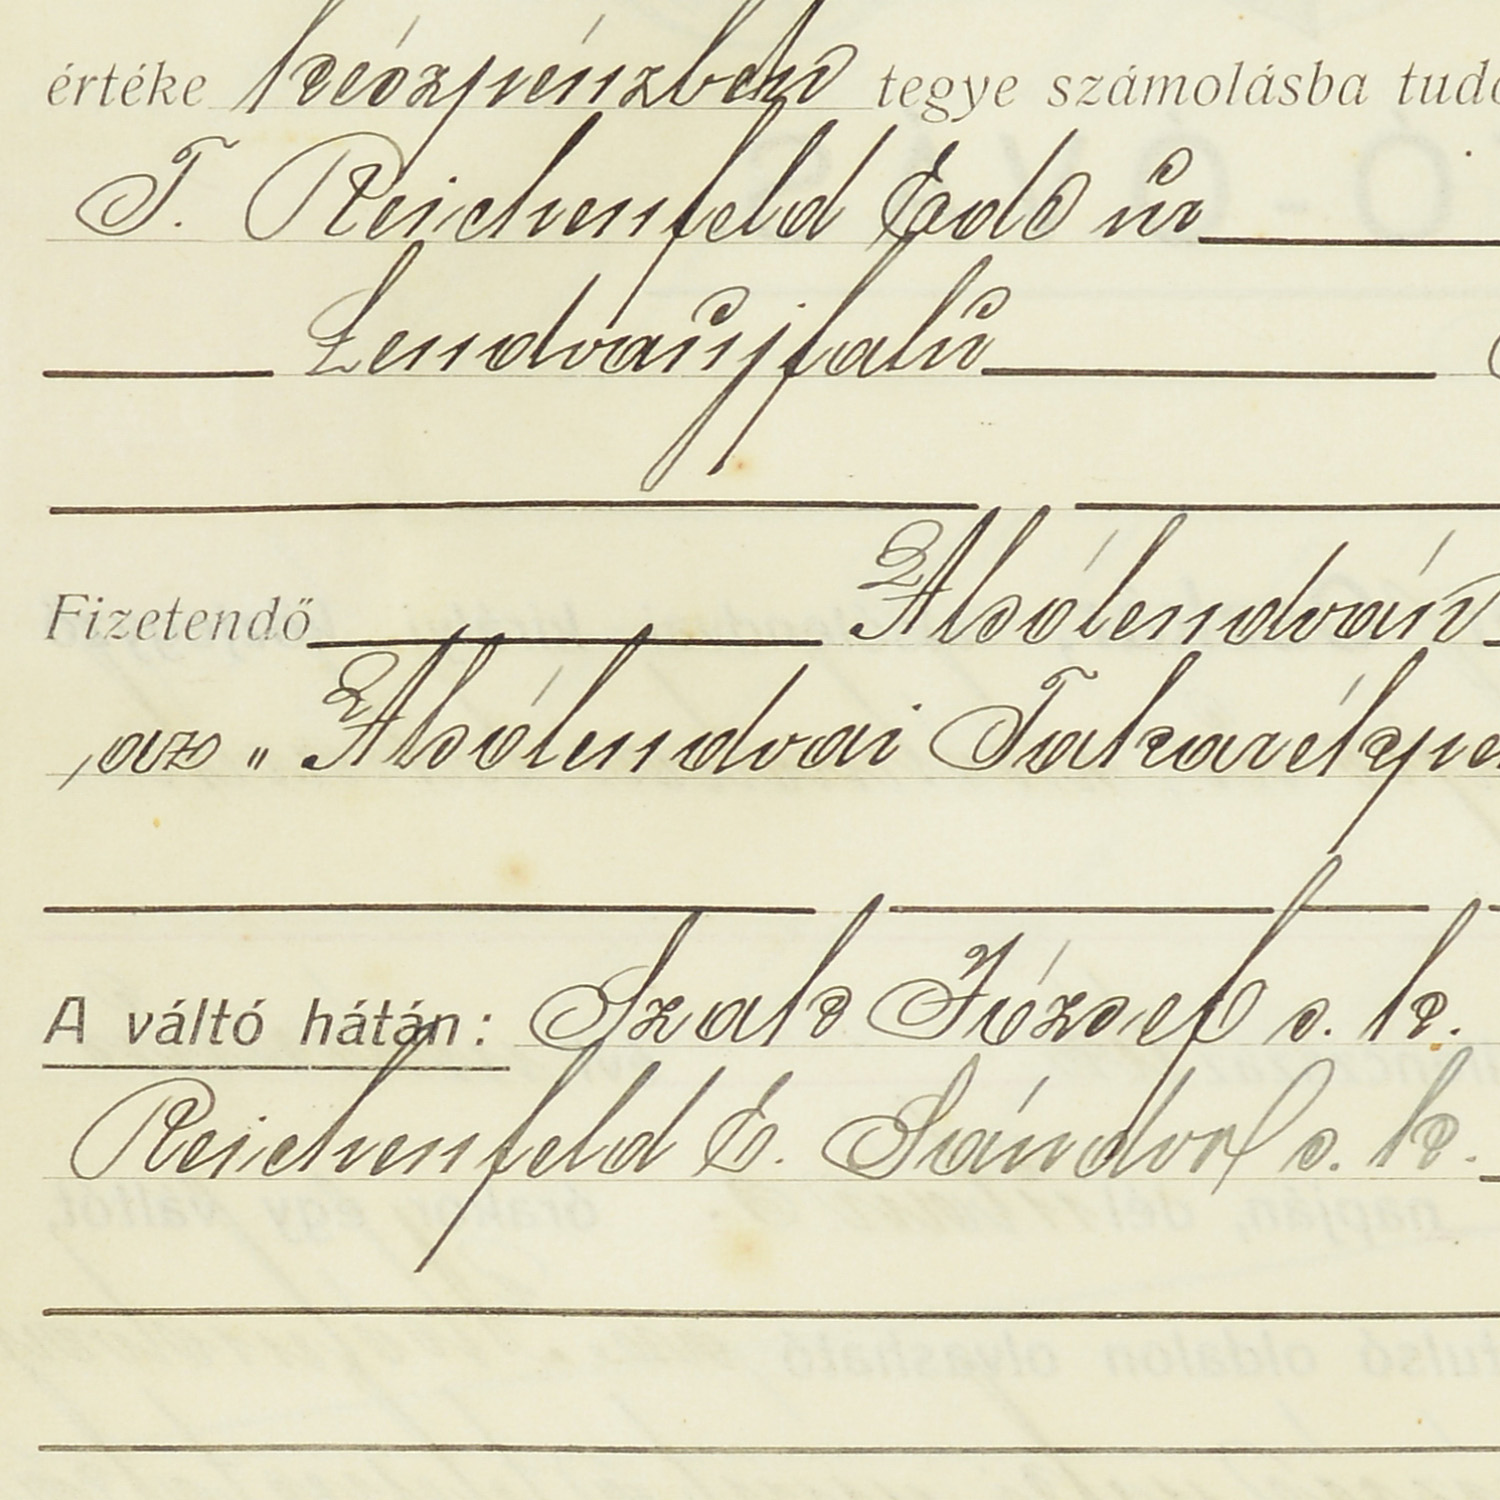 értéke készpénzben tegye számolásba tudó
T. Reichenfeld Ede úr
Lendvaújfalú
Fizetendő Alsólendván
az „Alsólendvai Takarékpé
A váltó hátán: Szak József s. k.
Reichenfeld E. Sándor s. k.